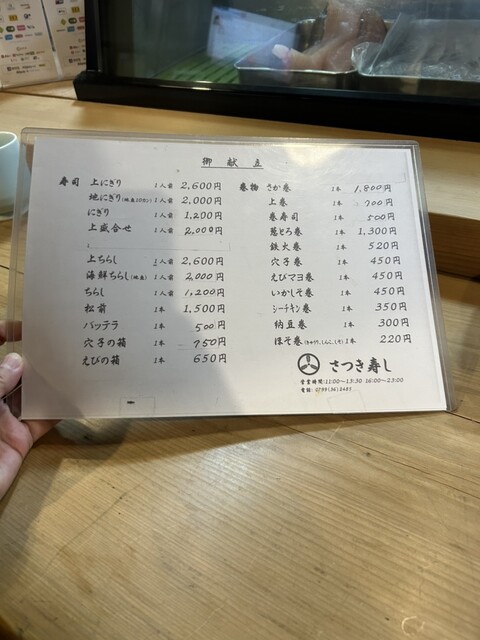 御献立
寿司 上にぎり 1人前 2,600円
地にぎり(地魚10カン) 1人前 2,000円
にぎり 1人前 1,200円
上盛合せ 1人前 2,000円
上ちらし 1人前 2,600円
海鮮ちらし(地魚) 1人前 2,000円
ちらし 1人前 1,200円
松前 1本 1,500円
バッテラ 1本 500円
穴子の箱 1本 750円
えびの箱 1本 650円
巻物 さか巻 1本 1,800円
上巻 1本 700円
巻寿司 1本 500円
葱とろ巻 1本 1,300円
鉄火巻 1本 520円
穴子巻 1本 450円
えびマヨ巻 1本 450円
いかしそ巻 1本 450円
シーチキン巻 1本 350円
納豆巻 1本 300円
ほそ巻(きゅうり,しんこ,しそ) 1本 220円
さつき寿し
営業時間:11:00～13:30 16:00～23:00
電話: 0799(36)2485